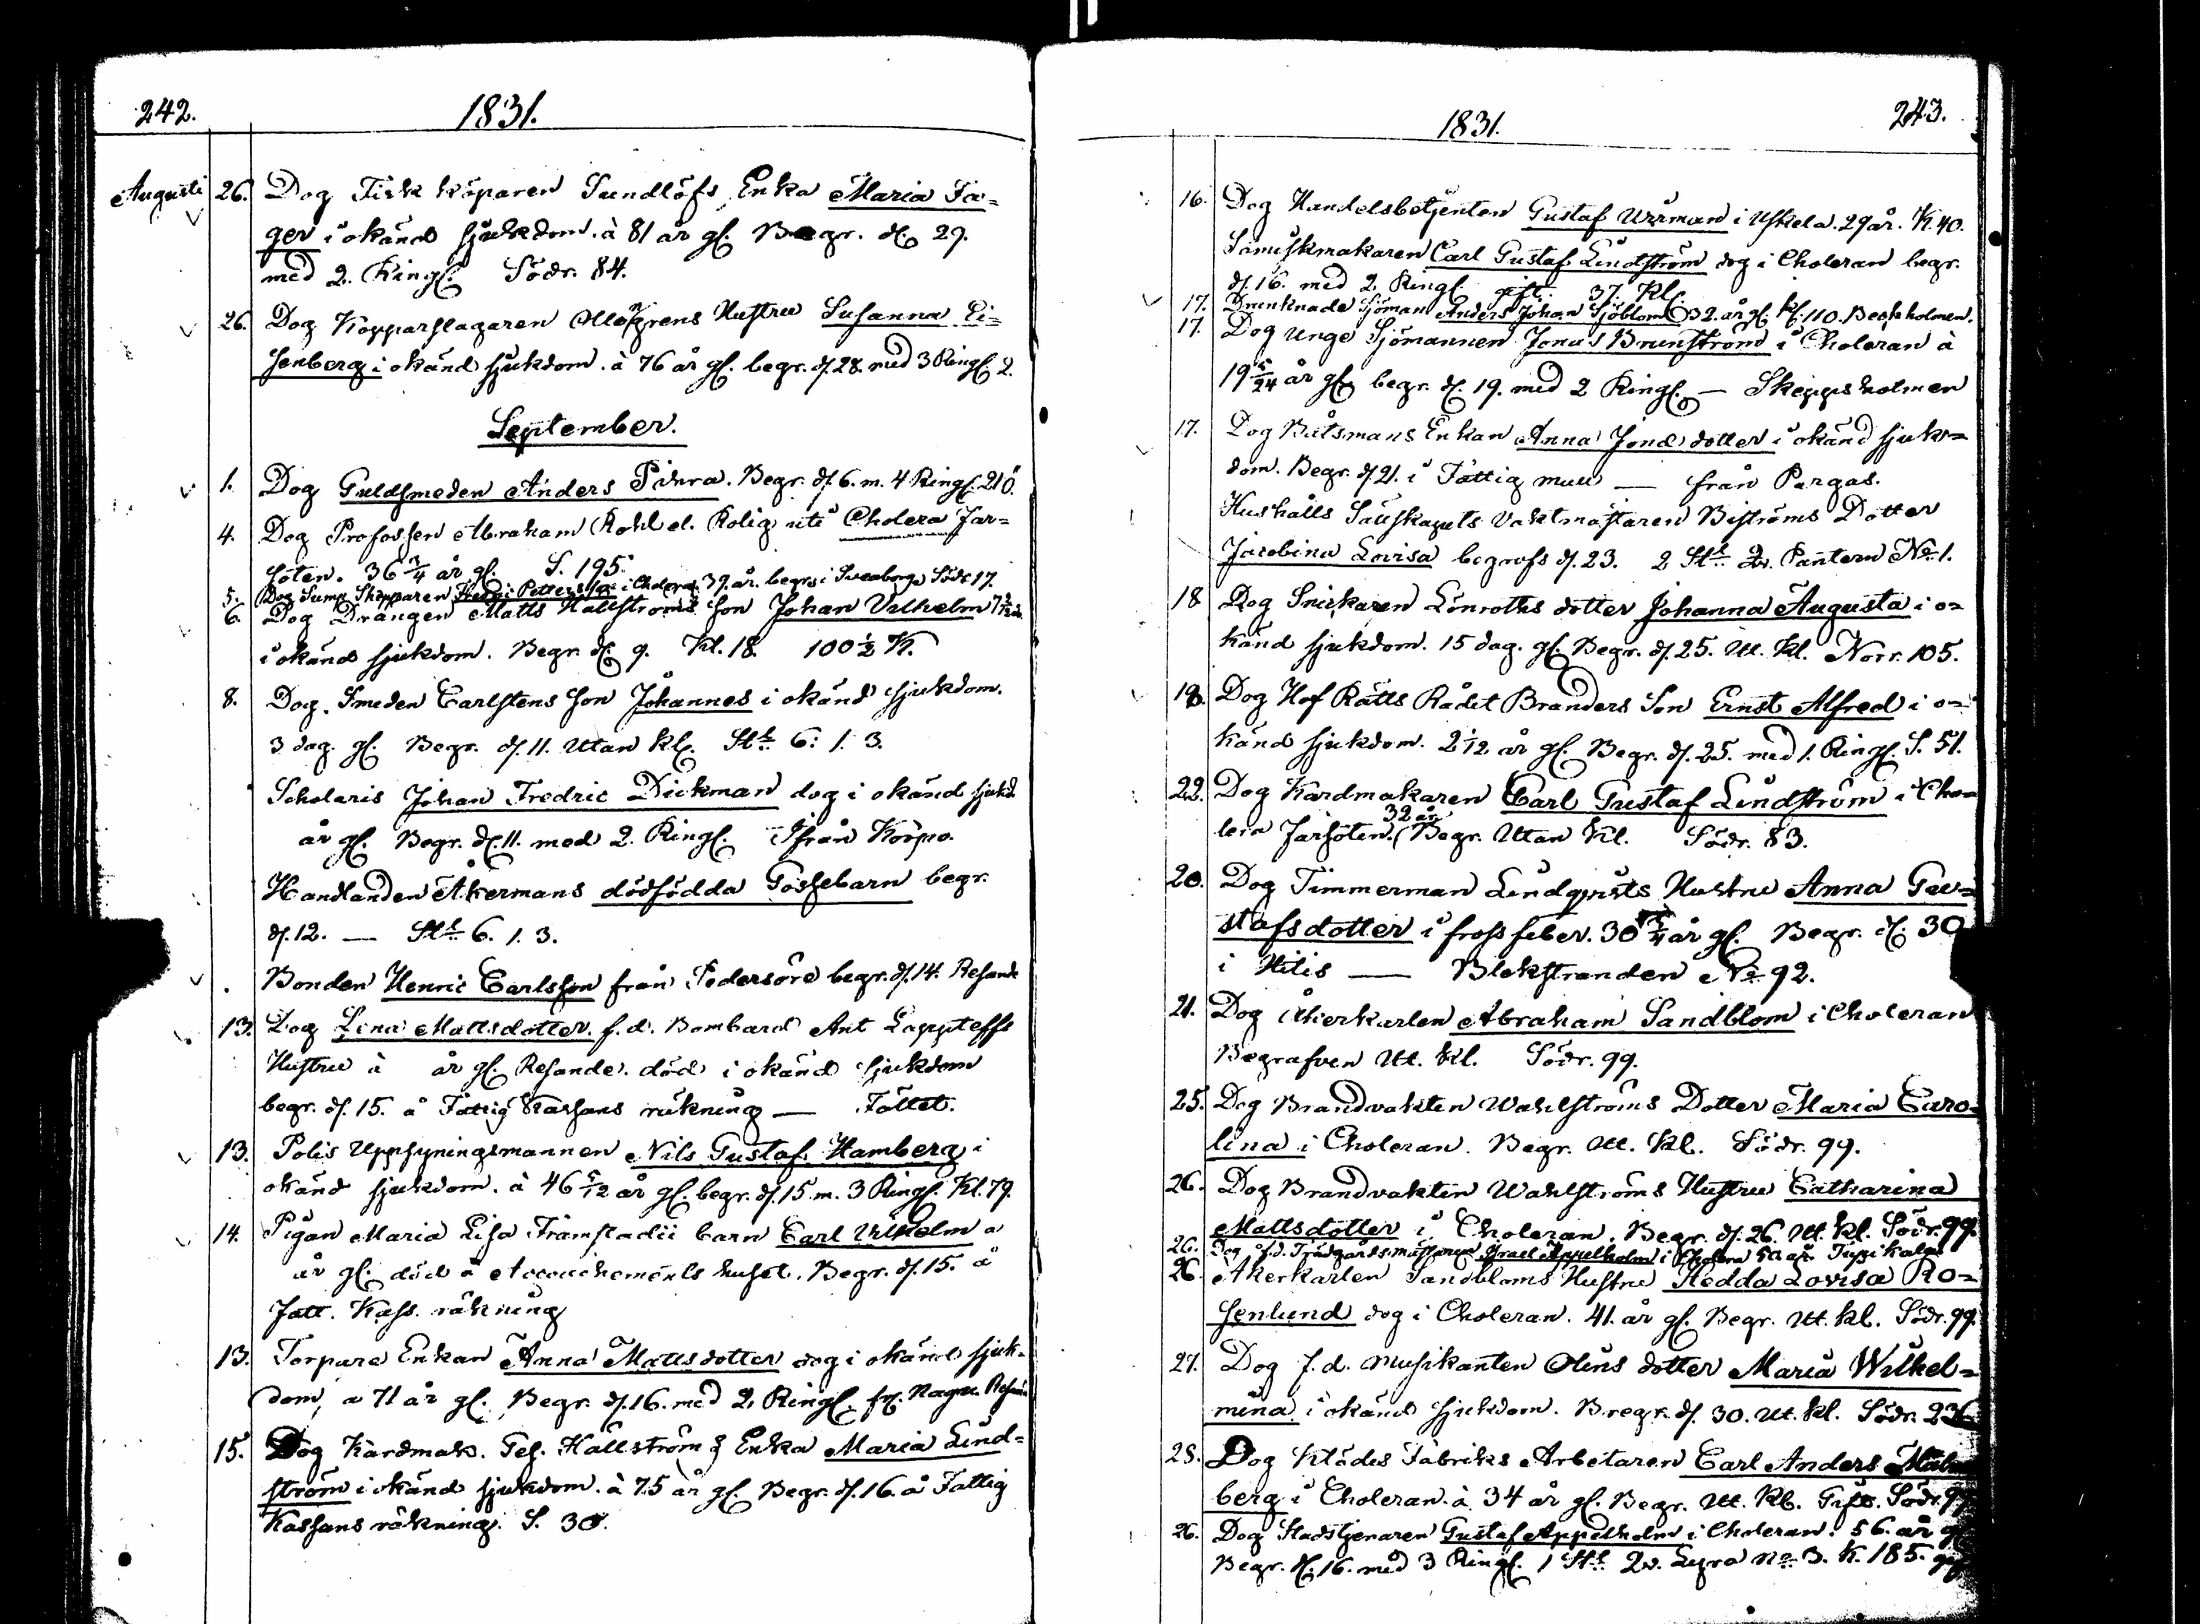 242.
1831.
Augusti 26. Dog Fiskköparen Sundlöfs Enka Maria Fa-
ger i okänd sjukdom. à 81 år gl. Begr. d. 29.
med 2. Ringl. Södr. 84.
26. Dog Kopparslagaren Hustru Susanna Ei-
senberg i okänd sjukdom. à 76 år gl. begr. d. 28. med 3 Ringl. 2.
September.
1. Dog Guldsmeden Anders Begr. d. 6. m. 4 Ringl.
4. Dog Profossen Abraham Kohl el. Rolig uti Cholera Far-
soten. 36 3/4 år gl. S. 195.
5. Dog Sump Skepparen Pettersson i Cholera 39 år. begrs i Sveaborg Södr 17.
6. Dog Drängen Matts Hallströms Son Johan Vilhelm
i okänd sjukdom. Begr. d. 9. Kl. 18. 100 1/2 K.
8. Dog Smeden Carlstens Son Johannes i okänd sjukdom.
3 dag. gl. Begr. d. 11. Utan Kl. 6: 1. 3.
Scholaris Johan Fredric Dickman dog i okänd sjukd
år gl. Begr. d. 11. med 2. Ringl. Ifrån Korpo.
Handlanden Åkermans dödfödda Gossebarn begr.
d. 12. — 6. 1. 3.
Bonden Henric Carlsson från Pedersöre begr. d. 14. Resande
13. Dog Lena Mattsdotter f. d. Bombard Ant Lappteffs
Hustru à år gl. Resande. död i okänd sjukdom
begr. d. 15. å Fattig Kassans räkning — Fältet.
13. Polis Uppsyningsmannen Nils Gustaf Hamberg i
okänd sjukdom. à 46 5/12 år gl. begr. d. 15. m. 3 Ringl. Kl. 79.
14. Pigan Maria Lisa Framstadii barn Carl Vilhelm a
år gl. död å Accouchements huset. Begr. d. 15. å
Fatt. Kass. räkning
13. Torpare Enkan Anna Mattsdotter dog i okänd sjuk-
dom, a 71 år gl. Begr. d. 16. med 2. Ringl. fr. Nagu
15. Dog Kardmak. Ges. Hallströms Enka Maria Lind-
ström i okänd sjukdom. à 75 år gl. Begr. d. 16. å Fattig
Kassans räkning. S. 30.
1831.
243.
16. Dog Handelsbetjenten Gustaf i Uskela. 29 år. K. 40.
Carl Gustaf Lindström dog i Choleran begr.
d. 16. med 2 Ringl. gift. 37. Kl.
17. Drunknade Sjöman Anders Johan Sjöblom 32. år gl. Kl. 110. Beckholmen.
17. Dog unge Sjömannen Jonas Brunström i Choleran à
19 5/24 år gl. begr. d. 19. med 2 Ringl. — Skeppsholmen
17. Dog Båtsmans Enkan Anna Jonæ dotter i okänd sjuk-
dom. Begr. d. 21. i Fattig mull — från Pargas.
Hushålls Sällskapets Vaktmästaren Biströms Dotter
Jacobina Lovisa begrofs d. 23. 2 Pantern No. 1.
18 Dog Snickaren Lönroths dotter Johanna Augusta i o-
känd sjukdom. 15 dag. gl. Begr. d. 25. Ut. Kl. Norr. 105.
18. Dog Hof Rätts Rådet Branders Son Ernst Alfred i o-
känd sjukdom. 2 1/12 år gl. Begr. d. 25. med 1. Ringl. S. 51.
22. Dog Kardmakaren Carl Gustaf Lindström i Cho-
lera Farsoten. 32 år Begr. Utan Kl. Södr. 83.
20. Dog Timmerman Lindqvists Hustru Anna Gu-
stafsdotter i frossfeber. 30 3/4 år gl. Begr. d. 30
i Hitis — Blekstranden No. 92.
21. Dog Åkerkarlen Abraham Sandblom i Choleran
Begrafven Ut. Kl. Södr. 99.
25. Dog Brandvakten Wahlströms Dotter Maria Caro-
lina i Choleran. Begr. Ut. Kl. Södr. 99.
26. Dog Brandvakten Wahlströms Hustru Catharina
Mattsdotter i Choleran. Begr. d. 26. Ut. Kl. Södr. 99.
26. Dog f.d. Trädgårdsmästaren Israel Appelholm i Cholera 50 år.
26. Åkerkarlen Sandbloms Hustru Hedda Lovisa Ro-
senlund dog i Choleran. 41. år gl. Begr. Ut. Kl. Södr. 99.
27. Dog f. d. Musikanten Olins dotter Maria Wilhel-
mina i okänd sjukdom. Begr. d. 30. Ut. Kl. Södr. 236
28. Dog Klädes Fabriks Arbetaren Carl Anders Malm
berg i Choleran. à 34 år gl. Begr. Ut. Kl. Gift. Södr.
26. Dog Stadstjenaren Gustaf Appelholm i Choleran. 56. år gl
Begr. d. 16. med 3 Ringl. 1 2. Lyra No. 3. K. 185.